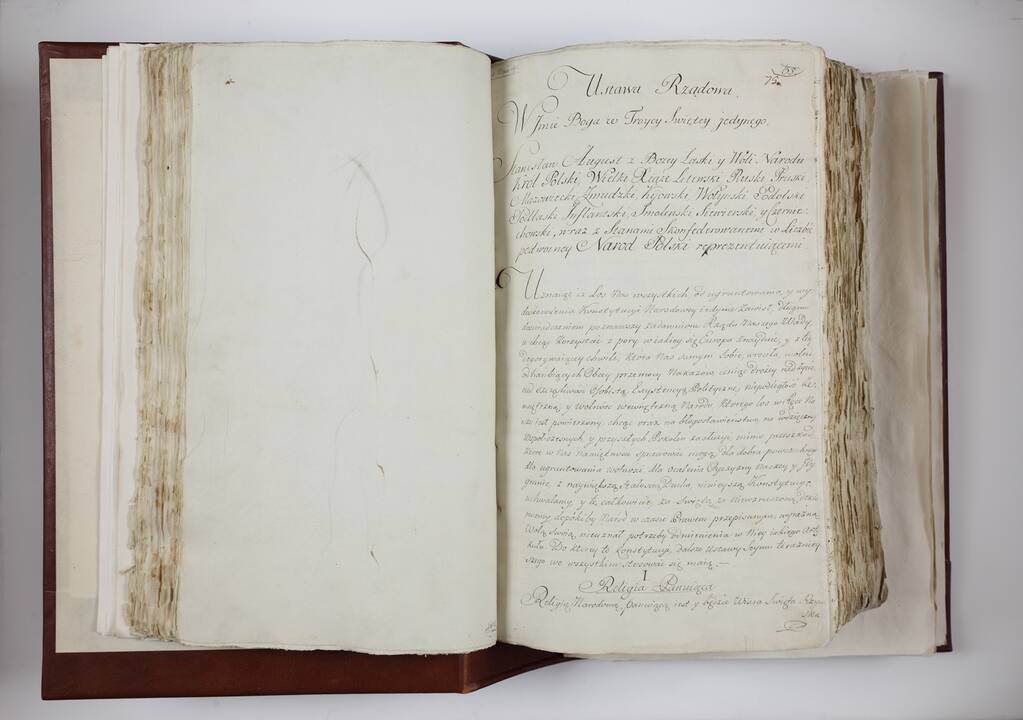 75.
Ustawa Rządowa.
W Jmie Boga w Troycy Swiętey jedynego.
Stanisław August z Bozey Łaski y Woli Narodu
Król Polski, Wielki Xiąże Litewski, Ruski, Pruski
Mazowiecki, Zmudzki, Kijowski, Wołyński, Podolski
Podlaski, Inflantski, Smolenski Siewierski, y Czernie-
chowski, wraz z Stanami Skonfederowanemi w Liczbie
podwoiney Naród Polski reprezentuiącemi
Uznaiąc iż Los Nas wszystkich, od ugruntowania, y wy
doskonalenia Konstytucyi Narodowey iedynie zawisł, długim
doświadczeniem poznawszy zadawnione Rządu Naszego Wady,
a chcąc korzystać z pory w iakiey się Europa znayduie, y z tey
dogorywaiącey chwili, ktora Nas samym Sobie wrociła, wolni
od hańbiących Obcey przemocy Nakazow, ceniąc drożey nad życie,
nad szczęśliwość Osobistą, Exystencyą Polityczną, niepodległość ze-
wnętrzną, y wolność wewnętrzną Narodu, ktorego los w ręce Na
sze iest powierzony, chcąc oraz na błogosławieństwo, na wdzięczność
współczesnych, y przyszłych Pokoleń zasłużyć, mimo przeszkod
ktore w Nas namiętności sprawować mogą, dla dobra powszechnego
dla ugruntowania wolności, dla ocalenia Oyczyzny Naszey, y Jey
granic, z naywiększą stałością Ducha, ninieyszą Konstytucyę
uchwalamy, y tę całkowicie za Swiętą, za Niewzruszoną dekla
ruiemy, dopókiby Naród w czasie Prawem przepisanym, wyraźną
Wolą Swoią nieuznał potrzeby odmienienia w Niey iakiego Arty
kułu. Do ktorey to Konstytucyi, dalsze Ustawy Seymu teraźniey
szego we wszystkim stosować się maią. —
I
Religia Panuiąca
Religią Narodową Panuiącą iest y będzie Wiara Swięta Rzym
ska